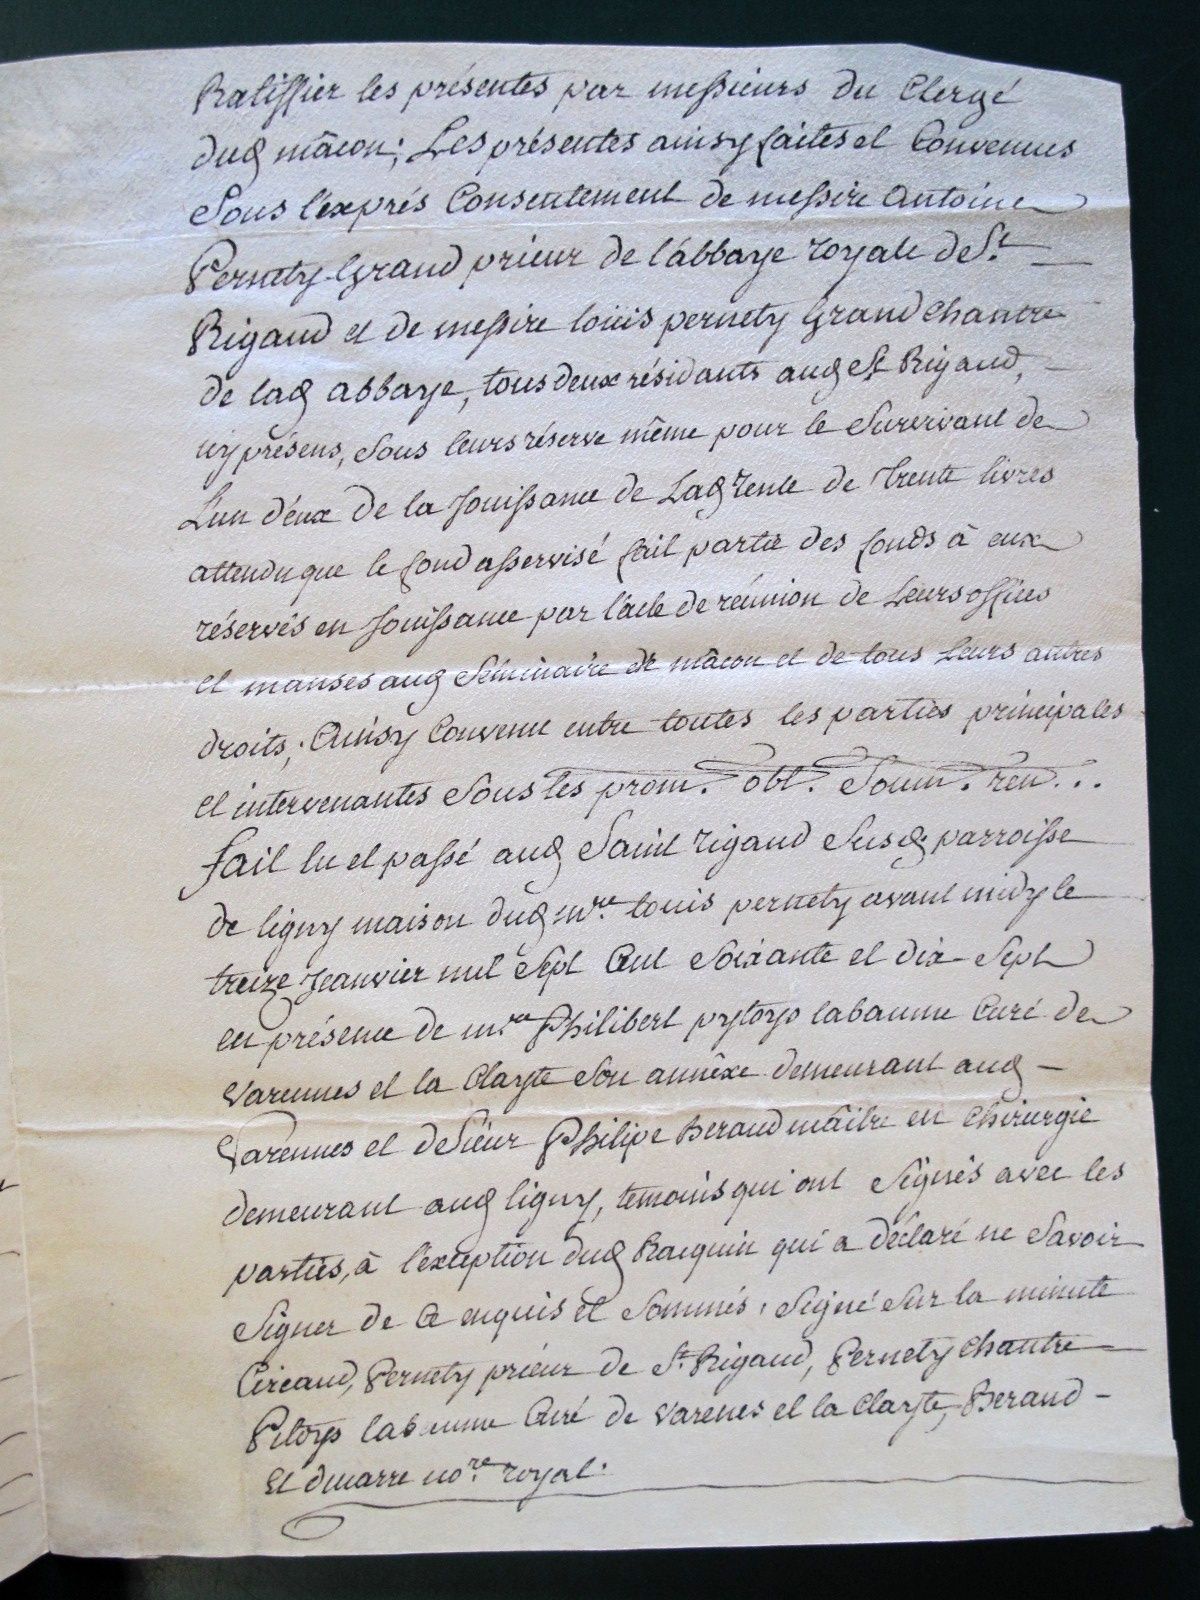 Ratiffier les présentes par messieurs du Clergé
dud mâcon; Les présentes ainsy faites et Convenues
Sous l'exprés Consentement de messire Antoine
Pernety Grand prieur de l'abbaye royale de St
Rigaud et de messire loüis pernety Grand Chantre
de lad abbaye, tous deux résidants aud St Rigaud,
icy présens, Sous leurs réserve même pour le Survivant de
L'un d'eux de la Jouissance de Lad rente de trente livres
attendu que le fond asservisé fait partie des fonds à eux
réservés en Jouissance par l'acte de réunion de Leurs offices
et manses aud Séminaire de mâcon et de tous Leurs autres
droits; Ainsy Convenu entre toutes les parties principales
et intervenantes Sous les prom. obl. Soum. ren...
fait lu et passé aud Saint rigaud Susd parroisse
de ligny maison dud mre louis pernety avant midy le
treize Jeanvier mil Sept Cent Soixante et dix Sept
en présence de mre Philibert pytoys labaume Curé de
Varennes et la Clayte Son annéxe demeurant aud
Varennes et de Sieur Philipe Beraud maître en Chirurgie
demeurant aud ligny, temoins qui ont Signés avec les
parties, à l'éxception dud Racquin qui a déclaré ne Savoir
Signer de Ce enquis et Sommés. Signé Sur la minute
Circaud, Pernety prieur de St Rigaud, Pernety Chantre
Pitoys labaume Curé de Varenes et la Clayte, Beraud
Et no.re royal.